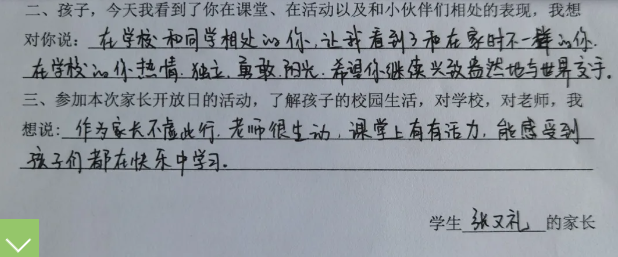 二、孩子，今天我看到了你在课堂、在活动以及和小伙伴们相处的表现，我想
对你说：在学校和同学相处的你，让我看到了和在家时不一样的你.
在学校的你热情.独立.勇敢.阳光.希望你继续兴致盎然地与世界交手。
三、参加本次家长开放日的活动，了解孩子的校园生活，对学校，对老师，我
想说：作为家长不虚此行.老师很生动，课堂上有有活力，能感受到
孩子们都在快乐中学习。
学生 张又礼 的家长